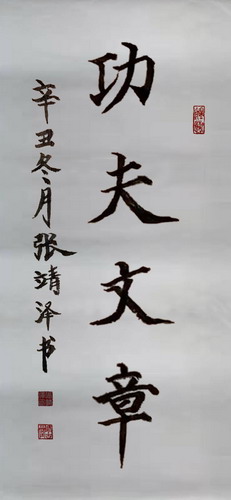 功夫文章
辛丑冬月张靖泽书